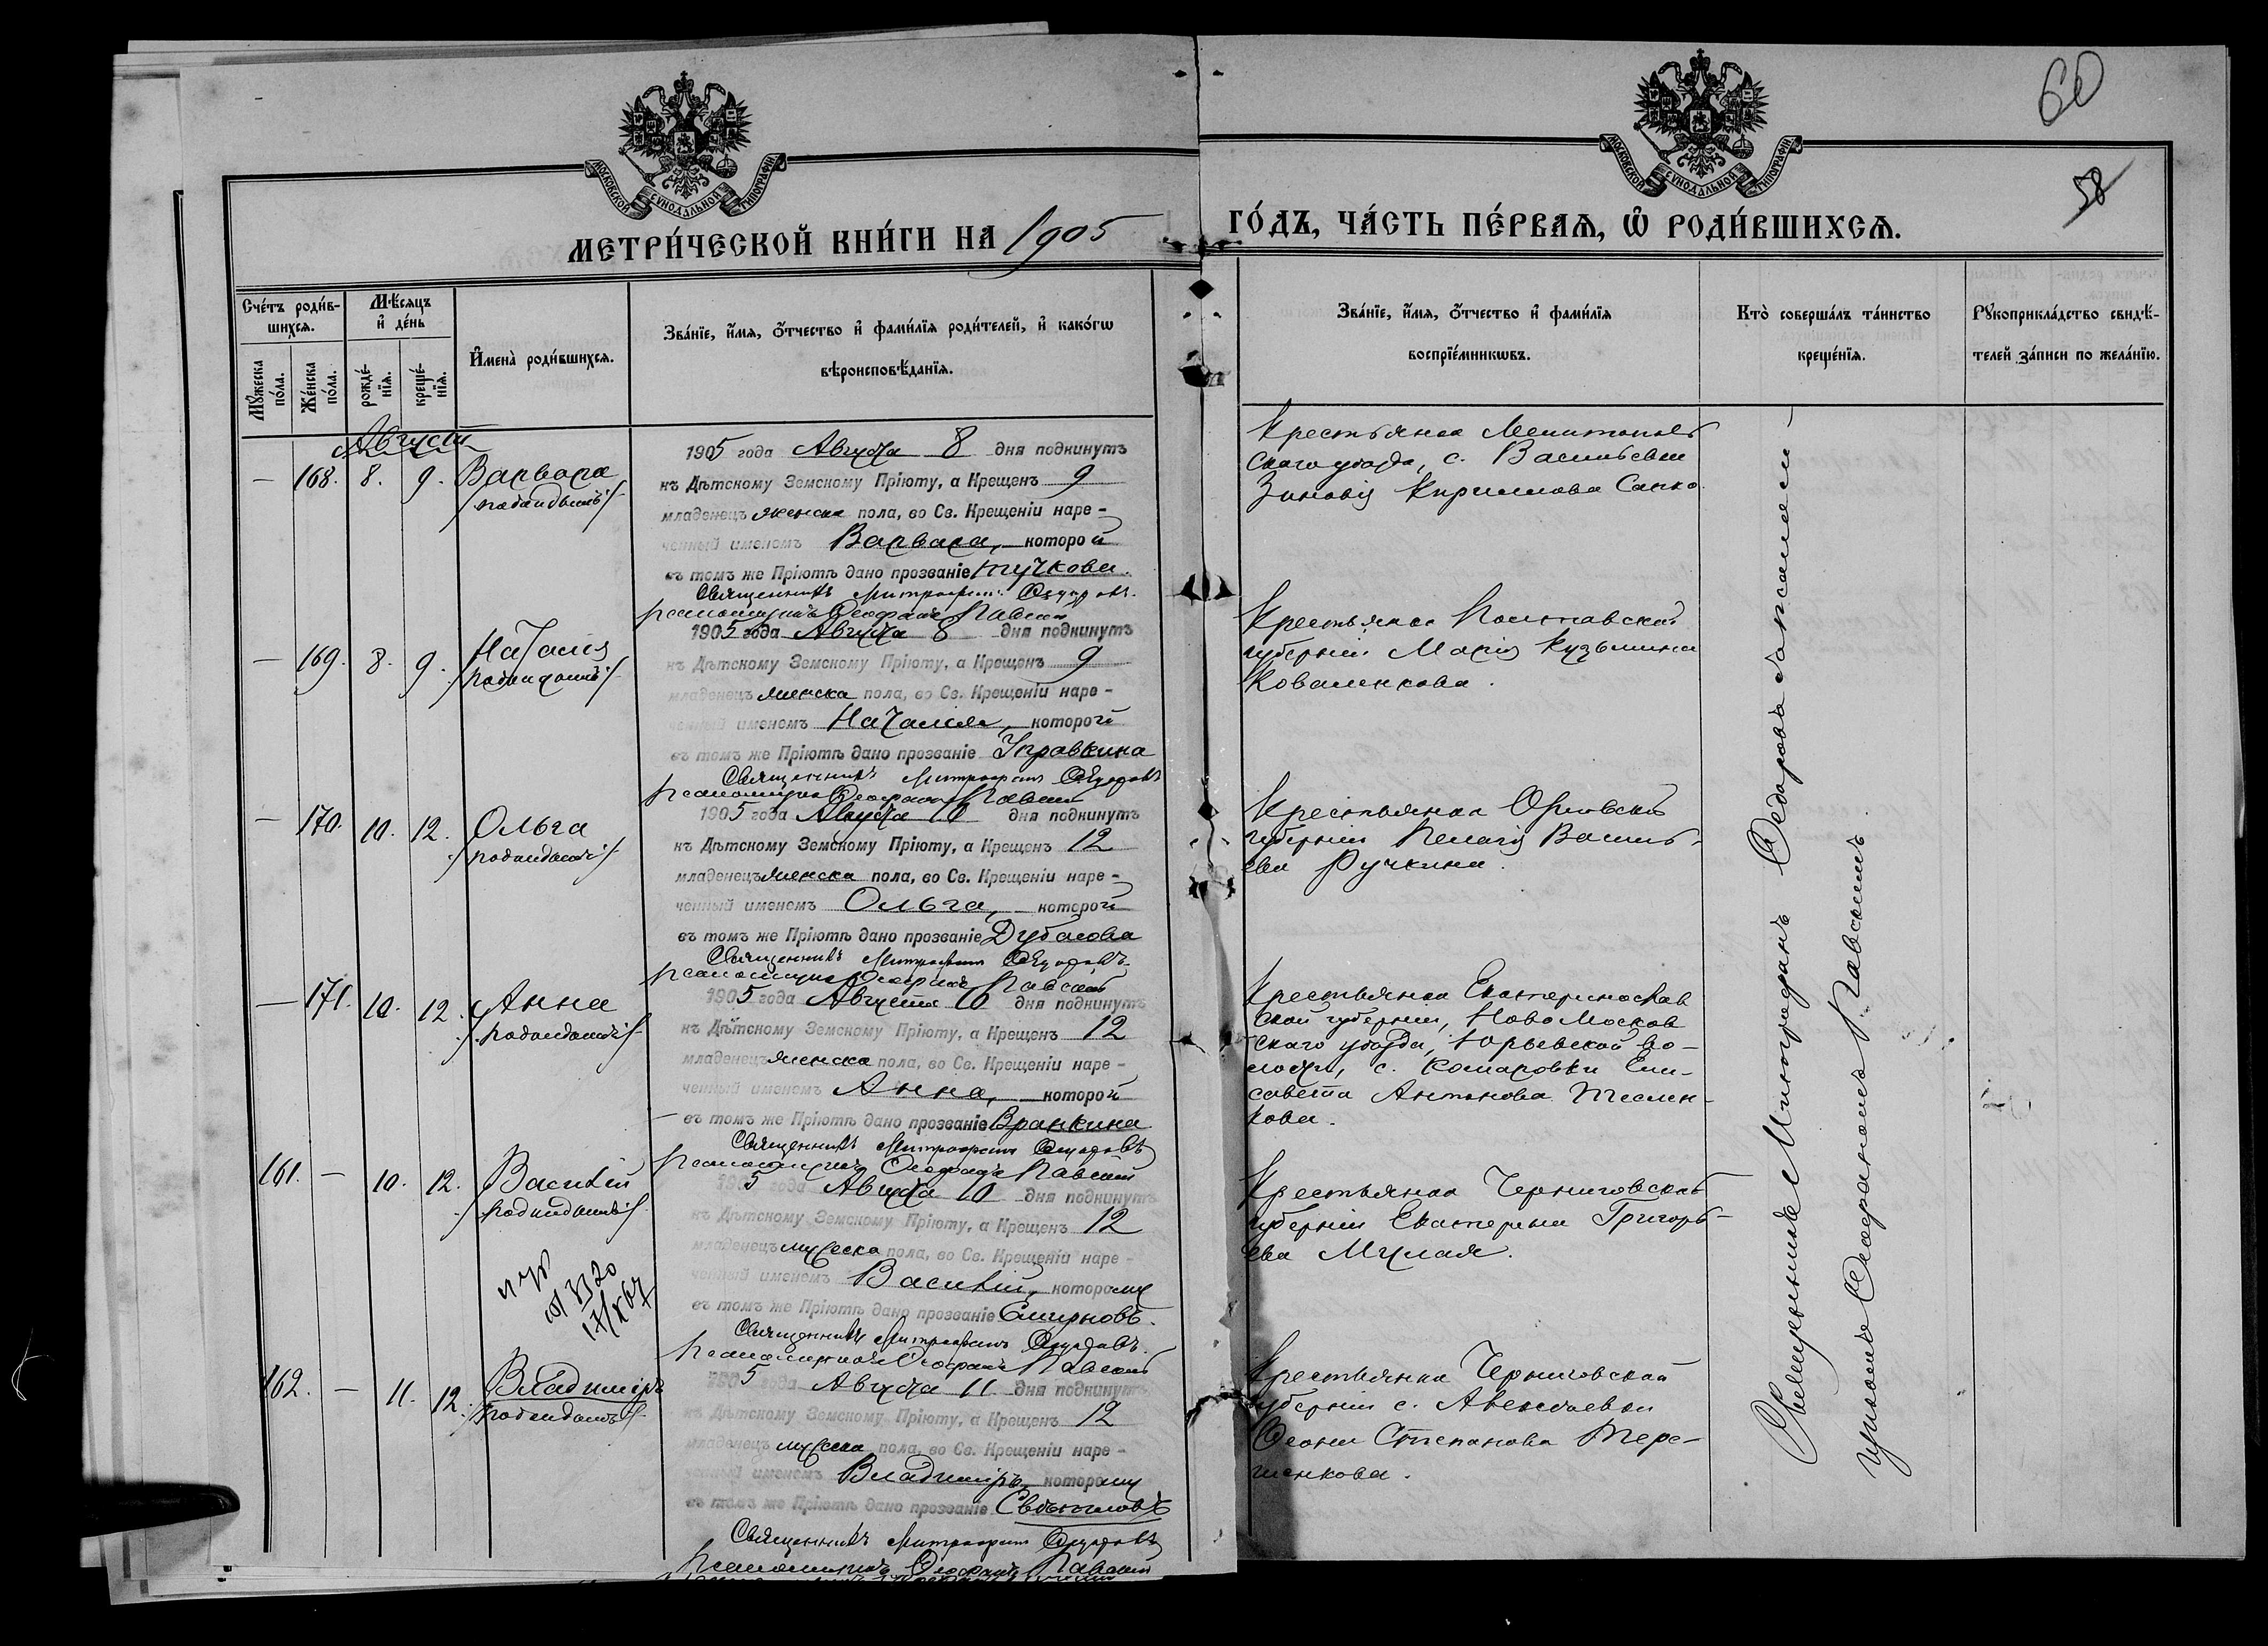 60
58
МОСКОВСКОЙ СѴНОДАЛЬНОЙ ТИПОГРАФІИ
МОСКОВСКОЙ СѴНОДАЛЬНОЙ ТИПОГРАФІИ
МЕТРИ́ЧЕСКОЙ КНИ́ГИ НА 1905 ГО́ДЪ, ЧА́СТЬ ПЕ́РВАѦ, Ѡ҆ РОДИ́ВШИХСѦ.
Сче́тъ роди́в-
шихсѧ.
Мꙋ́жеска по́ла.
Же́нска по́ла.
Мѣ́сѧцъ
и҆ де́нь
рожде́-
нїѧ.
креще́-
нїѧ.
И҆мена̀ роди́вшихсѧ.
Зва́нїе, и҆́мѧ, ѻ҆́тчество и҆ фами́лїѧ роди́телей, и҆ како́гѡ
вѣроисповѣ́данїѧ.
Зва́нїе, и҆́мѧ, ѻ҆́тчество и҆ фами́лїѧ
воспрїе́мникѡвъ.
Кто̀ соверша́лъ та́инство
креще́нїѧ.
Рꙋкоприкла́дство свидѣ́-
телей за́писи по жела́нїю.
Августъ
— 168. 8. 9. Варвара
1905 года Августа 8 дня подкинутъ
къ Дѣтскому Земскому Пріюту, а Крещенъ 9
младенецъ женска пола, во Св. Крещеніи наре-
ченный именемъ Варвара, которой
въ томъ же Пріютѣ дано прозваніе Тучкова.
Священникъ Митрофанъ
Псаломщикъ Ѳеофанъ Павскій
Крестьянка Мелитополь
скаго уѣзда, с. Васильевки
Зиновія Кириллова Сапко.
— 169. 8. 9. Наталія
1905 года Августа 8 дня подкинутъ
къ Дѣтскому Земскому Пріюту, а Крещенъ 9
младенецъ женска пола, во Св. Крещеніи наре-
ченный именемъ Наталія, которой
въ томъ же Пріютѣ дано прозваніе Управкина
Священникъ Митрофанъ
Псаломщикъ Ѳеофанъ Павскій
Крестьянка Полтавской
губерніи Марія Кузьмина
Коваленкова.
— 170. 10. 12. Ольга
1905 года Августа 10 дня подкинутъ
къ Дѣтскому Земскому Пріюту, а Крещенъ 12
младенецъ женска пола, во Св. Крещеніи наре-
ченный именемъ Ольга, которой
въ томъ же Пріютѣ дано прозваніе Дубасова
Священникъ Митрофанъ
Псаломщикъ Ѳеофанъ Павскій
Крестьянка Орловской
губерніи Пелагія Василь-
ева Ручкина.
— 171. 10. 12. Анна
1905 года Августа 10 дня подкинутъ
къ Дѣтскому Земскому Пріюту, а Крещенъ 12
младенецъ женска пола, во Св. Крещеніи наре-
ченный именемъ Анна, которой
въ томъ же Пріютѣ дано прозваніе Вранкина
Священникъ Митрофанъ
Псаломщикъ Ѳеофанъ Павскій
Крестьянка Екатеринослав
ской губерніи, Новомосков
скаго уѣзда, Юрьевской во-
лости, с. Комаровки Ели-
савета Антонова Теслен-
кова.
161. — 10. 12. Василій
1905 года Августа 10 дня подкинутъ
къ Дѣтскому Земскому Пріюту, а Крещенъ 12
младенецъ мужеска пола, во Св. Крещеніи наре-
ченный именемъ Василій, которому
въ томъ же Пріютѣ дано прозваніе Смирновъ.
Священникъ Митрофанъ
Псаломщикъ Ѳеофанъ Павскій
Крестьянка Черниговской
губерніи Екатерина Григорь-
ева Мулая.
162. — 11. 12. Владиміръ
1905 года Августа 11 дня подкинутъ
къ Дѣтскому Земскому Пріюту, а Крещенъ 12
младенецъ мужеска пола, во Св. Крещеніи наре-
ченный именемъ Владиміръ, которому
въ томъ же Пріютѣ дано прозваніе
Священникъ Митрофанъ
Псаломщикъ Ѳеофанъ Павскій
Крестьянка Черниговской
губерніи с.
Степанова Тере-
щенкова.
Священникъ Митрофанъ съ псалом-
щикомъ Ѳеофаномъ Павскимъ.